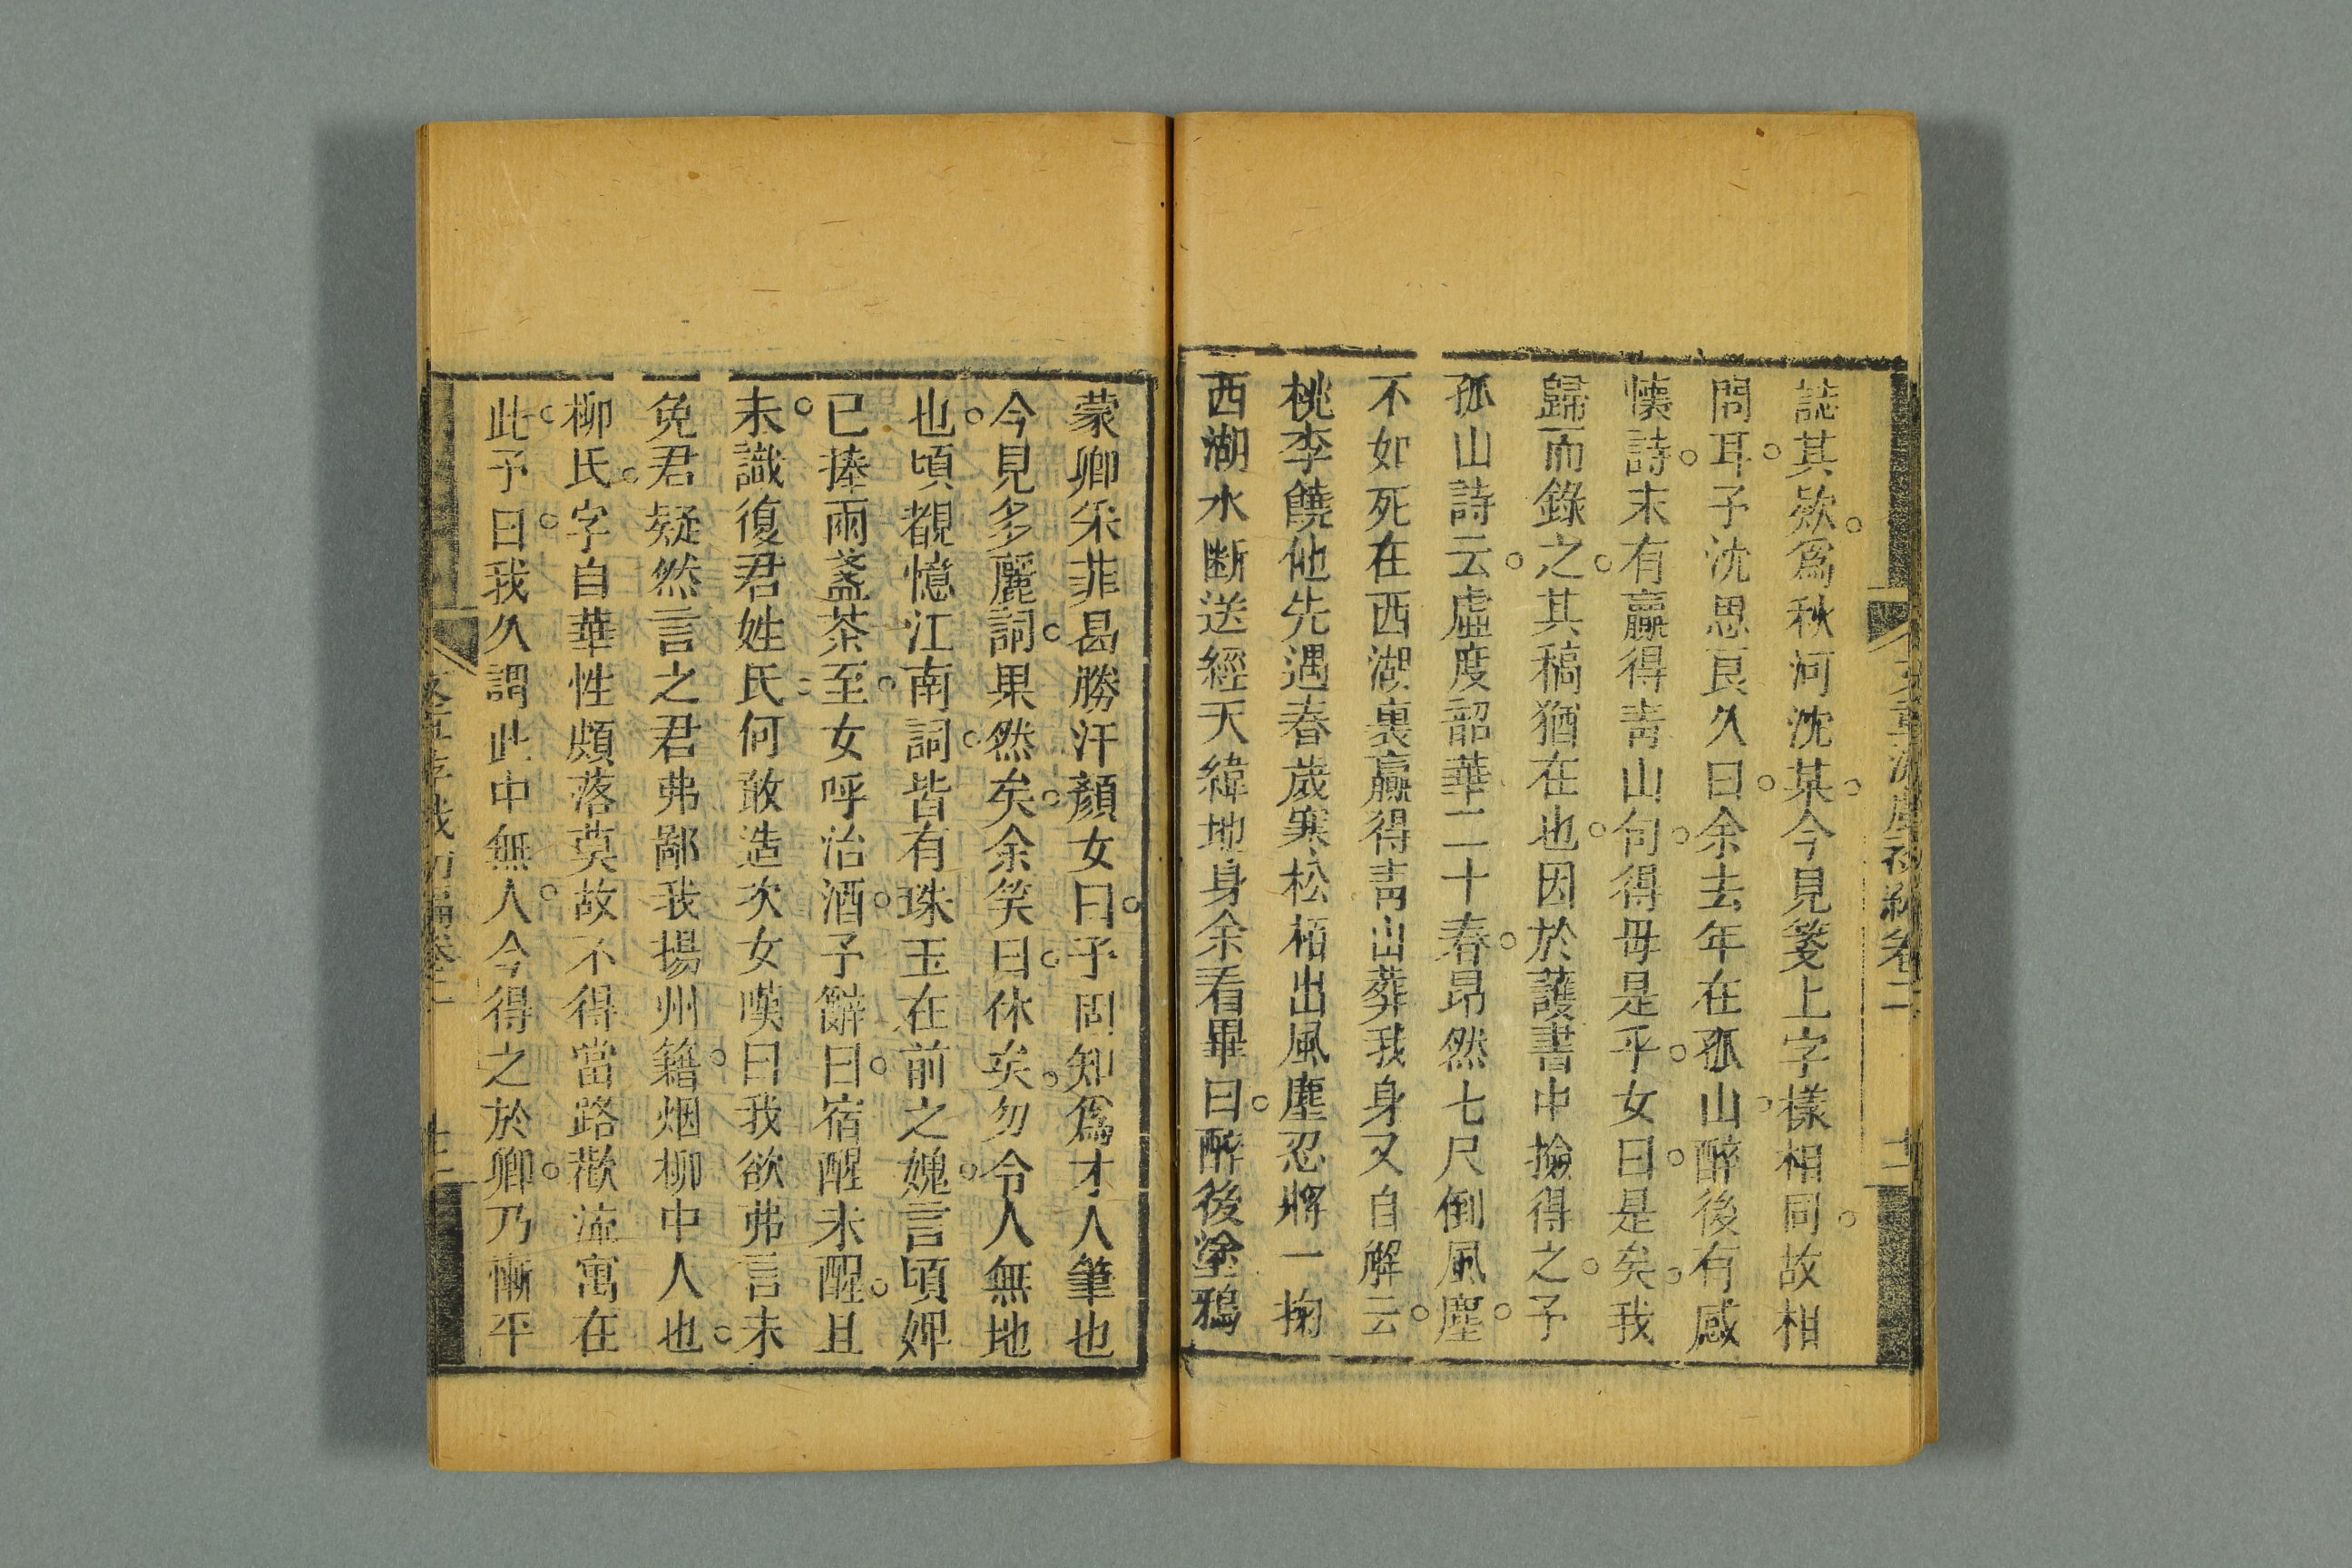 誌其欵。爲秋河沈某。今見箋上字樣相同。故相
問耳。予沈思良久曰。余去年在孤山。醉後有感
懷詩。末有贏得青山句。得毋是乎。女曰。是矣。我
歸而錄之。其稿猶在也。因於護書中撿得之。予
孤山詩云。虛度韶華二十春。昂然七尺倒風塵。
不如死在西湖裏贏得青山葬我身又自解云。
桃李饒他先遇春歲寒松栢出風塵忍將一掬
西湖水断送經天緯地身余看畢曰。醉後塗鴉
蒙卿采菲曷勝汗顏女曰。予固知爲才人筆也
今見多麗詞。果然矣。余笑曰。休矣。勿令人無地
也。頃覩憶江南詞。皆有珠玉在前之媿。言頃婢
已捧雨盞茶至。女呼治酒。予辭曰。宿醒未醒。且
未。識復君姓氏。何敢造次女嘆曰我欲弗言未
免君疑然言之君弗鄙我揚州籍。烟柳中人也。
柳氏。字自華性頗落莫故不得當路歡流寓在
此。予曰。我久謂此中無人。今得之於卿。乃慚平
卷二
十二